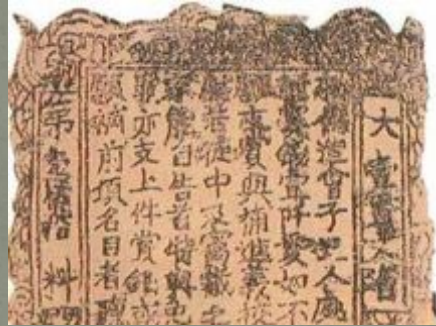 大壹貫文省
偽造會子犯人處
賞錢壹阡貫如不
支賞與補進義校
尉若徒中及窩藏之
家能自告首特與免
罪亦支上件賞錢或
願補前項名目者聽
第壹 拾料